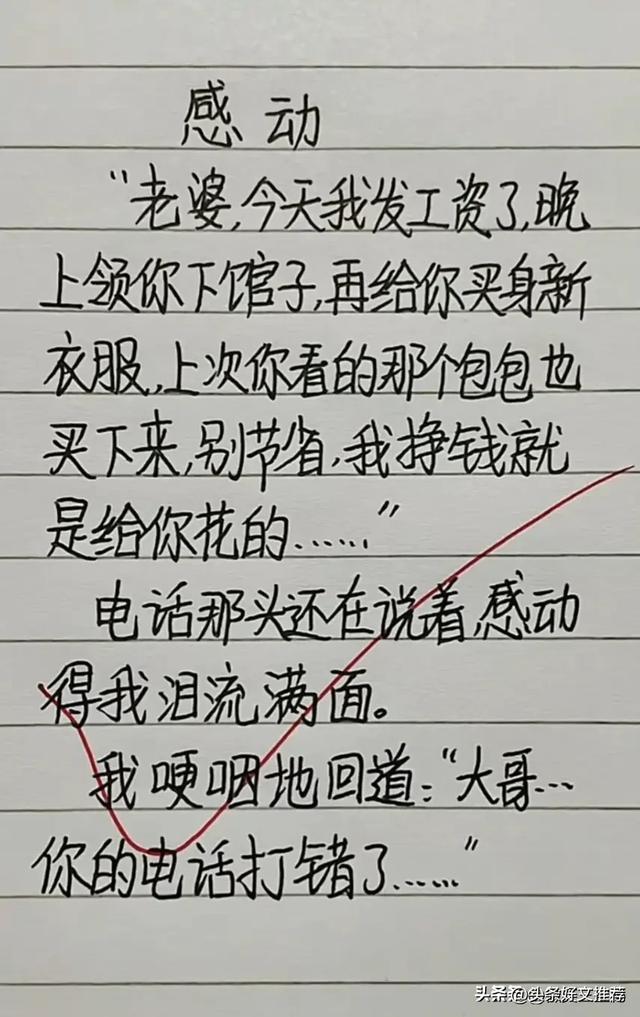 感动
“老婆,今天我发工资了,晚
上领你下馆子,再给你买身新
衣服,上次你看的那个包包也
买下来,别节省,我挣钱就
是给你花的......”
电话那头还在说着,感动
得我泪流满面。
我哽咽地回道:“大哥...
你的电话打错了......”
头条@头条好文推荐